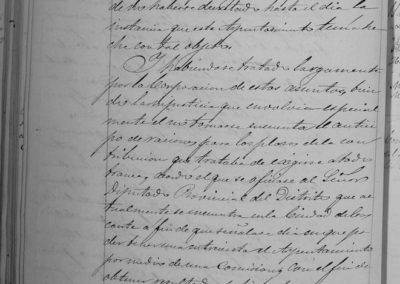 de haberse devuelto hasta el día la
instancia que este Ayuntamiento tenía he
cha con tal objeto.
Y habiéndose tratado largamente
por la Corporacion de estos asuntos, vien
do la injusticia que envolvia especial
mente el no tomarse en cuenta el antici
po de raciones para los plazos de la con
tribucion que trataba de exigirse a toda
franca, acordó el que se oficiase al Señor
Diputado Provincial del Distrito que ac
tualmente se encuentra en la Ciudad de
cante a fin de que señalase dia en que po
der tener una entrevista el Ayuntamiento
por medio de una Comision, con el fin de
obtener